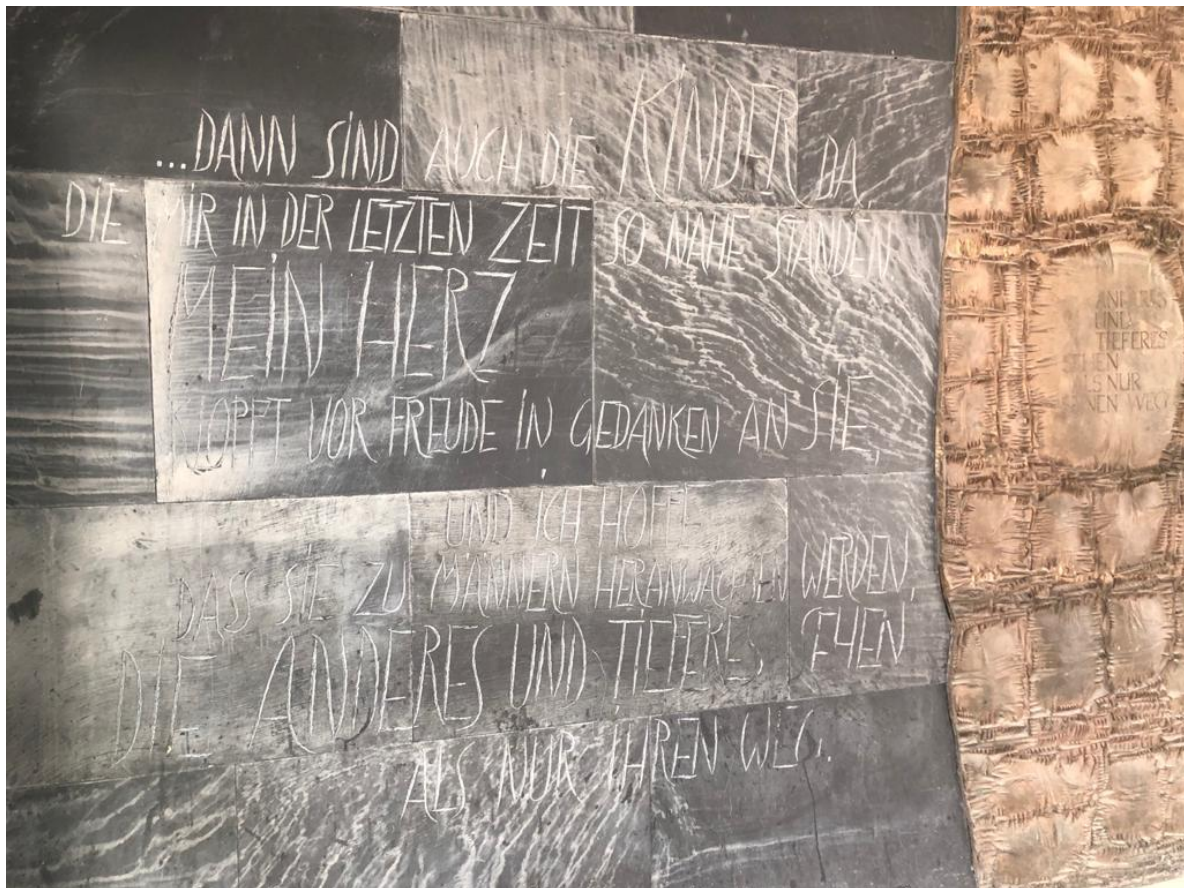 ...DANN SIND AUCH DIE KINDER DA,
DIE MIR IN DER LETZTEN ZEIT SO NAHE STANDEN.
MEIN HERZ
KLOPFT VOR FREUDE IN GEDANKEN AN SIE,
UND ICH HOFFE,
DASS SIE ZU MÄNNERN HERANWACHSEN WERDEN,
DIE ANDERES UND TIEFERES SEHEN
ALS NUR IHREN WEG.
ANDERES
UND
TIEFERES
SEHEN
ALS NUR
WEG